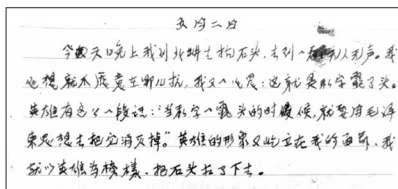 五月二日
今天晚上我到北坡去抬石头，去到一看无人无声。我
也想就不愿意在那儿抗，我又一心想：这就是私字露了头。
英雄有这么一段话：“当私字一露头的时候，就要用毛泽
东思想去把它消灭掉。”英雄的形象又屹立在我的面前，我
就以英雄当榜样，把石头拉了下去。